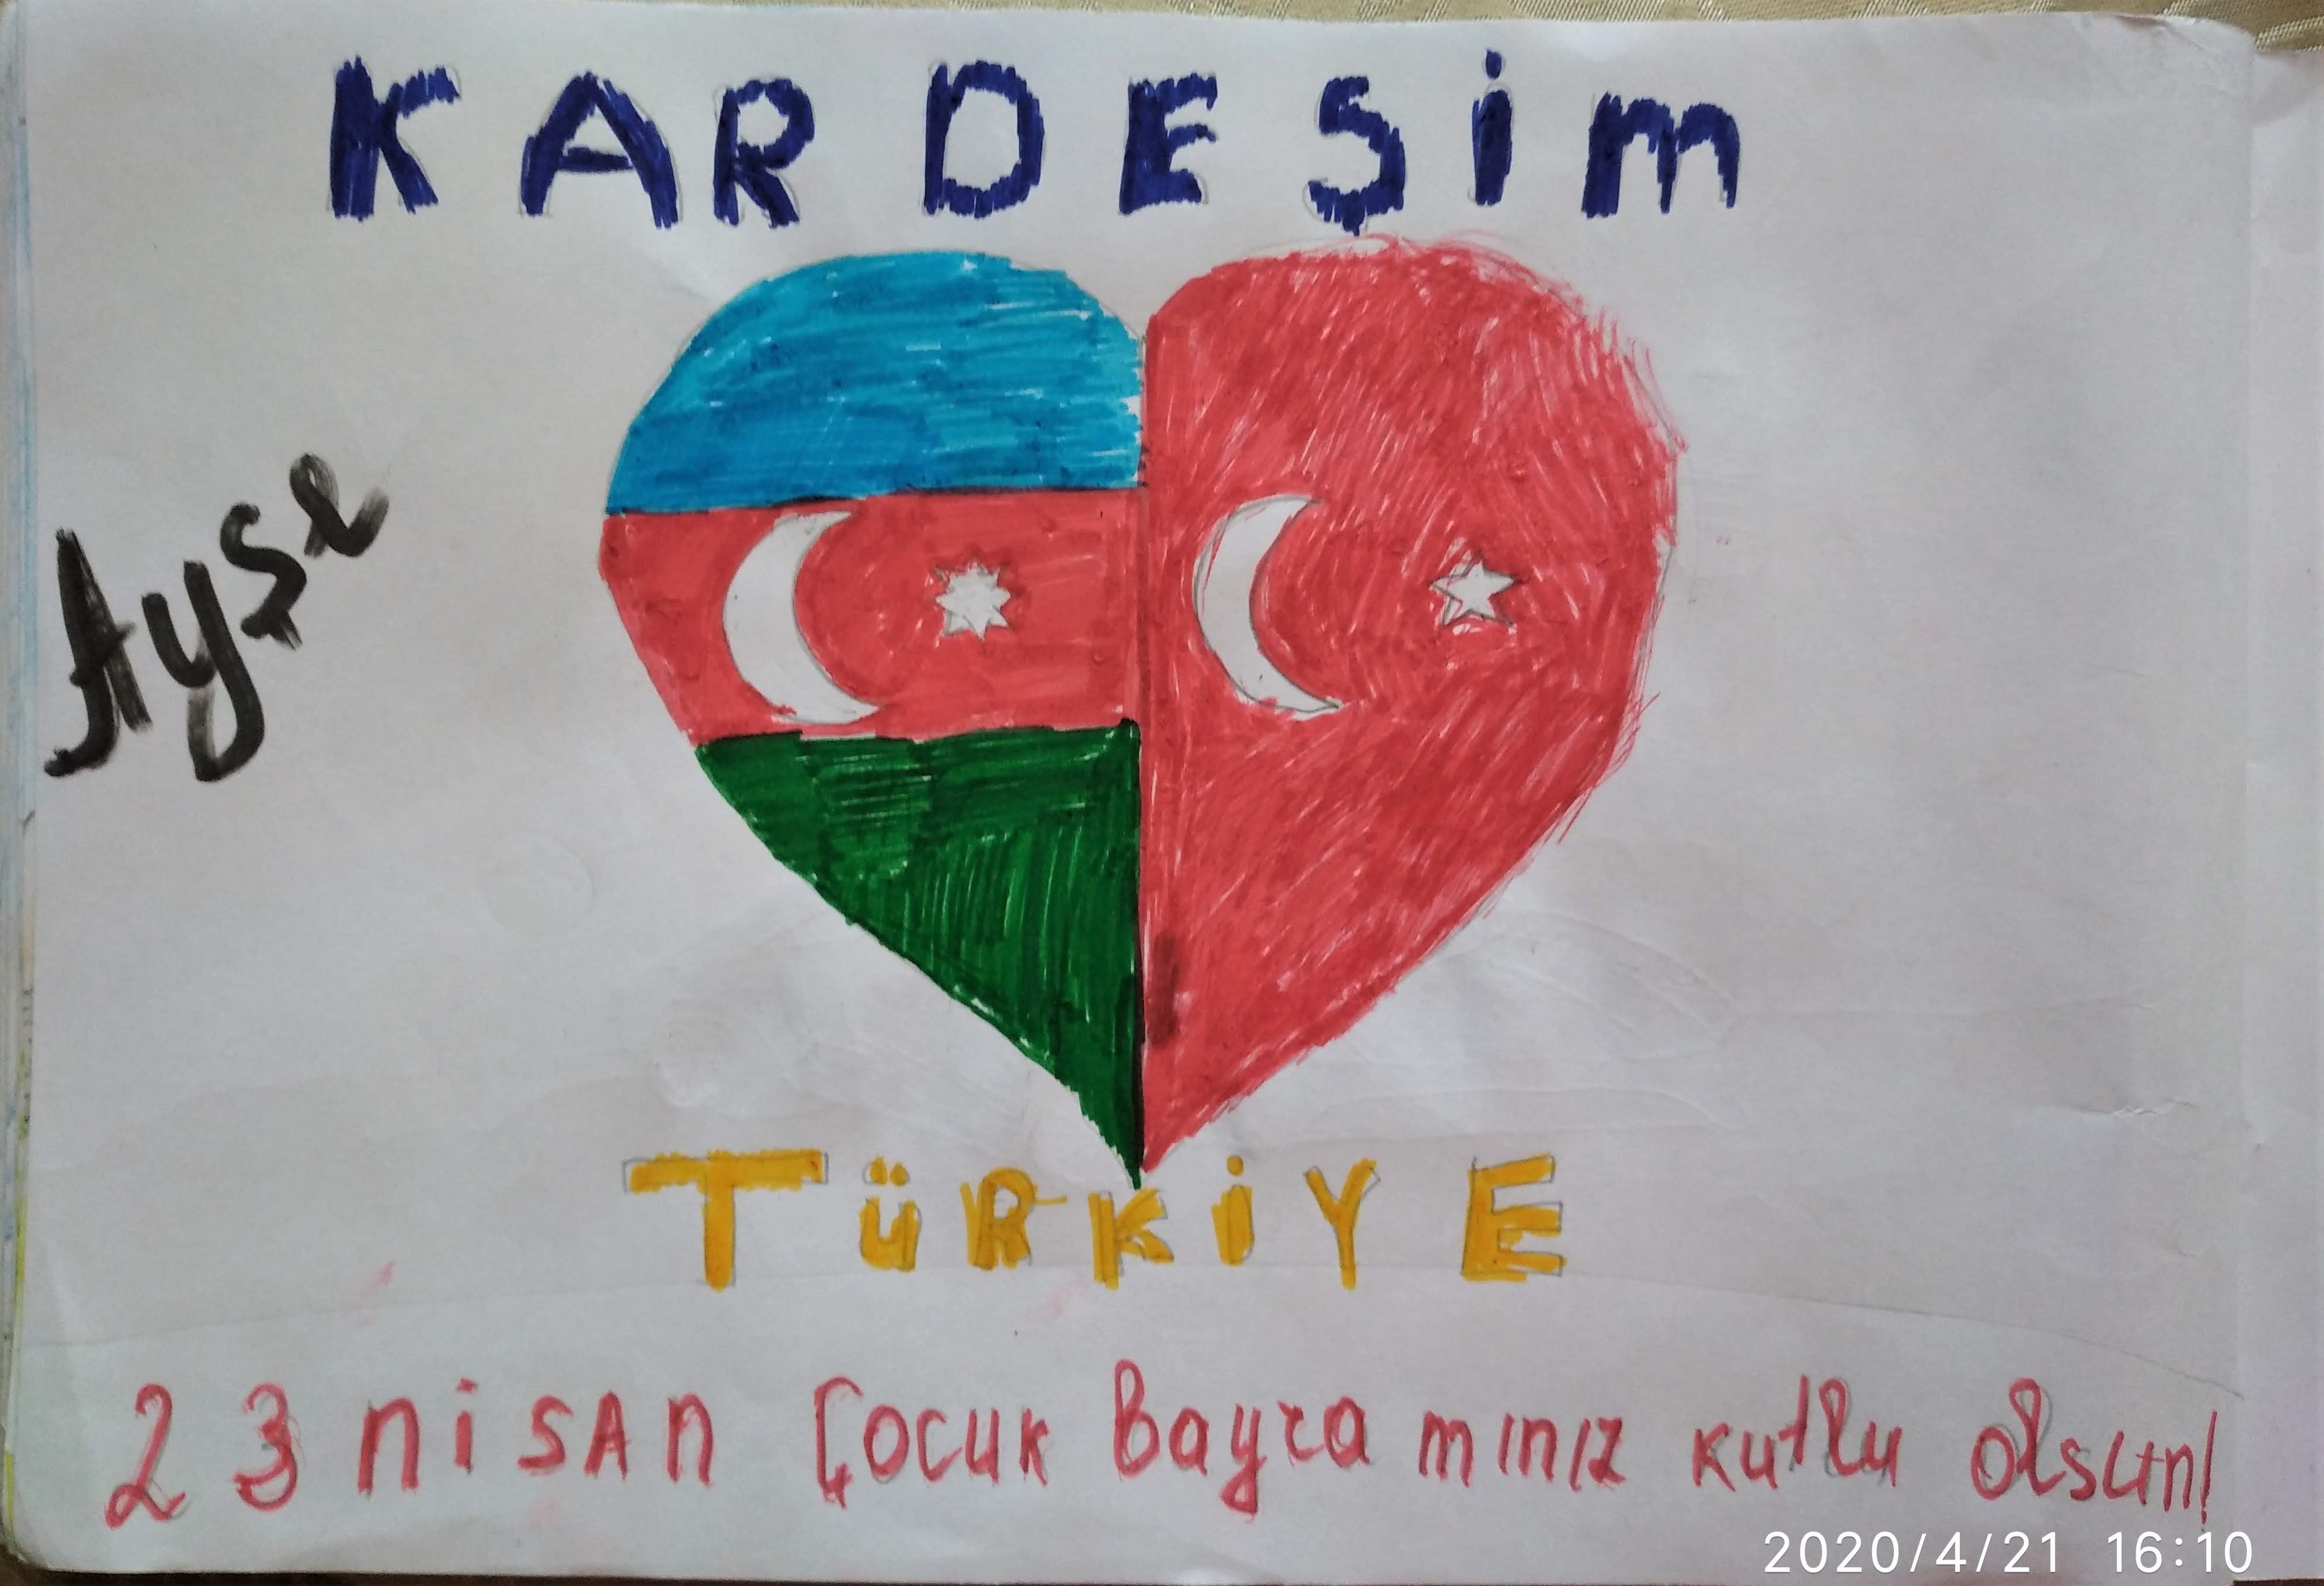 KARDEŞİM
Ayşe
TÜRKİYE
23 NİSAN Çocuk Bayramınız kutlu olsun!
2020/4/21 16:10